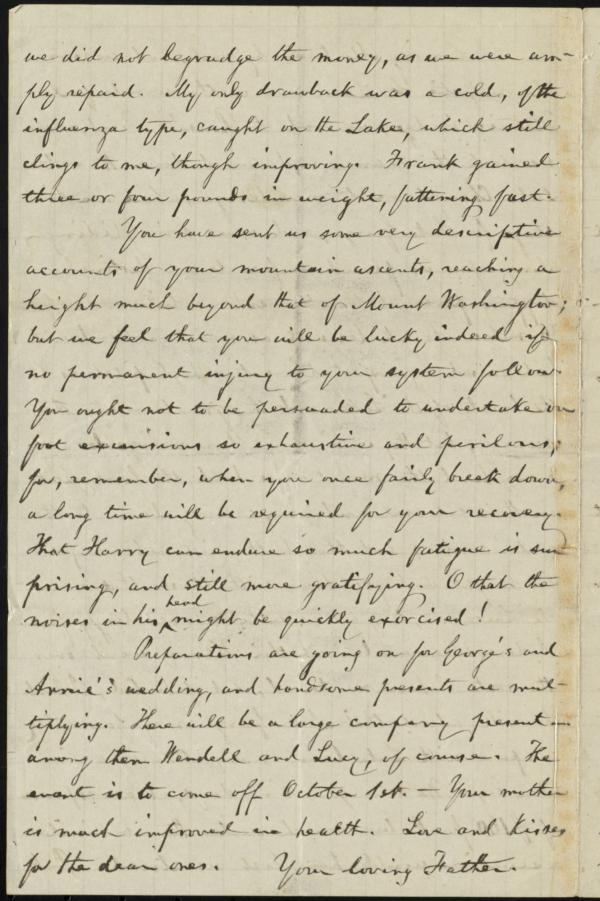 we did not begrudge the money, as we were am-
ply repaid. My only drawback was a cold, of the
influenza type, caught on the Lake, which still
clings to me, though improving. Frank gained
three or four pounds in weight, fattening fast.
You have sent us some very descriptive
accounts of your mountain ascents, reaching a
height much beyond that of Mount Washington;
but we feel that you will be lucky indeed if
no permanent injury to your system follow.
You ought not to be persuaded to undertake on
foot excursions so exhaustive and perilous;
for, remember, when you once fairly break down,
a long time will be required for your recovery.
That Harry can endure so much fatigue is sur
prising, and still more gratifying. O that the
noises in his head might be quickly exorcised!
Preparations are going on for George's and
Annie's wedding, and handsome presents are mul-
tiplying. There will be a large company present—
among them Wendell and Lucy, of course. The
event is to come off October 1st. — Your mother
is much improved in health. Love and kisses
for the dear ones. Your loving Father.